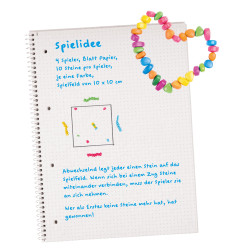 Spielidee
4 Spieler, Blatt Papier,
10 Steine pro Spieler,
je eine Farbe,
Spielfeld von 10 x 10 cm
Abwechselnd legt jeder einen Stein auf das
Spielfeld. Wenn sich bei einem Zug Steine
miteinander verbinden, muss der Spieler sie
an sich nehmen.
Wer als Erstes keine Steine mehr hat, hat
gewonnen!